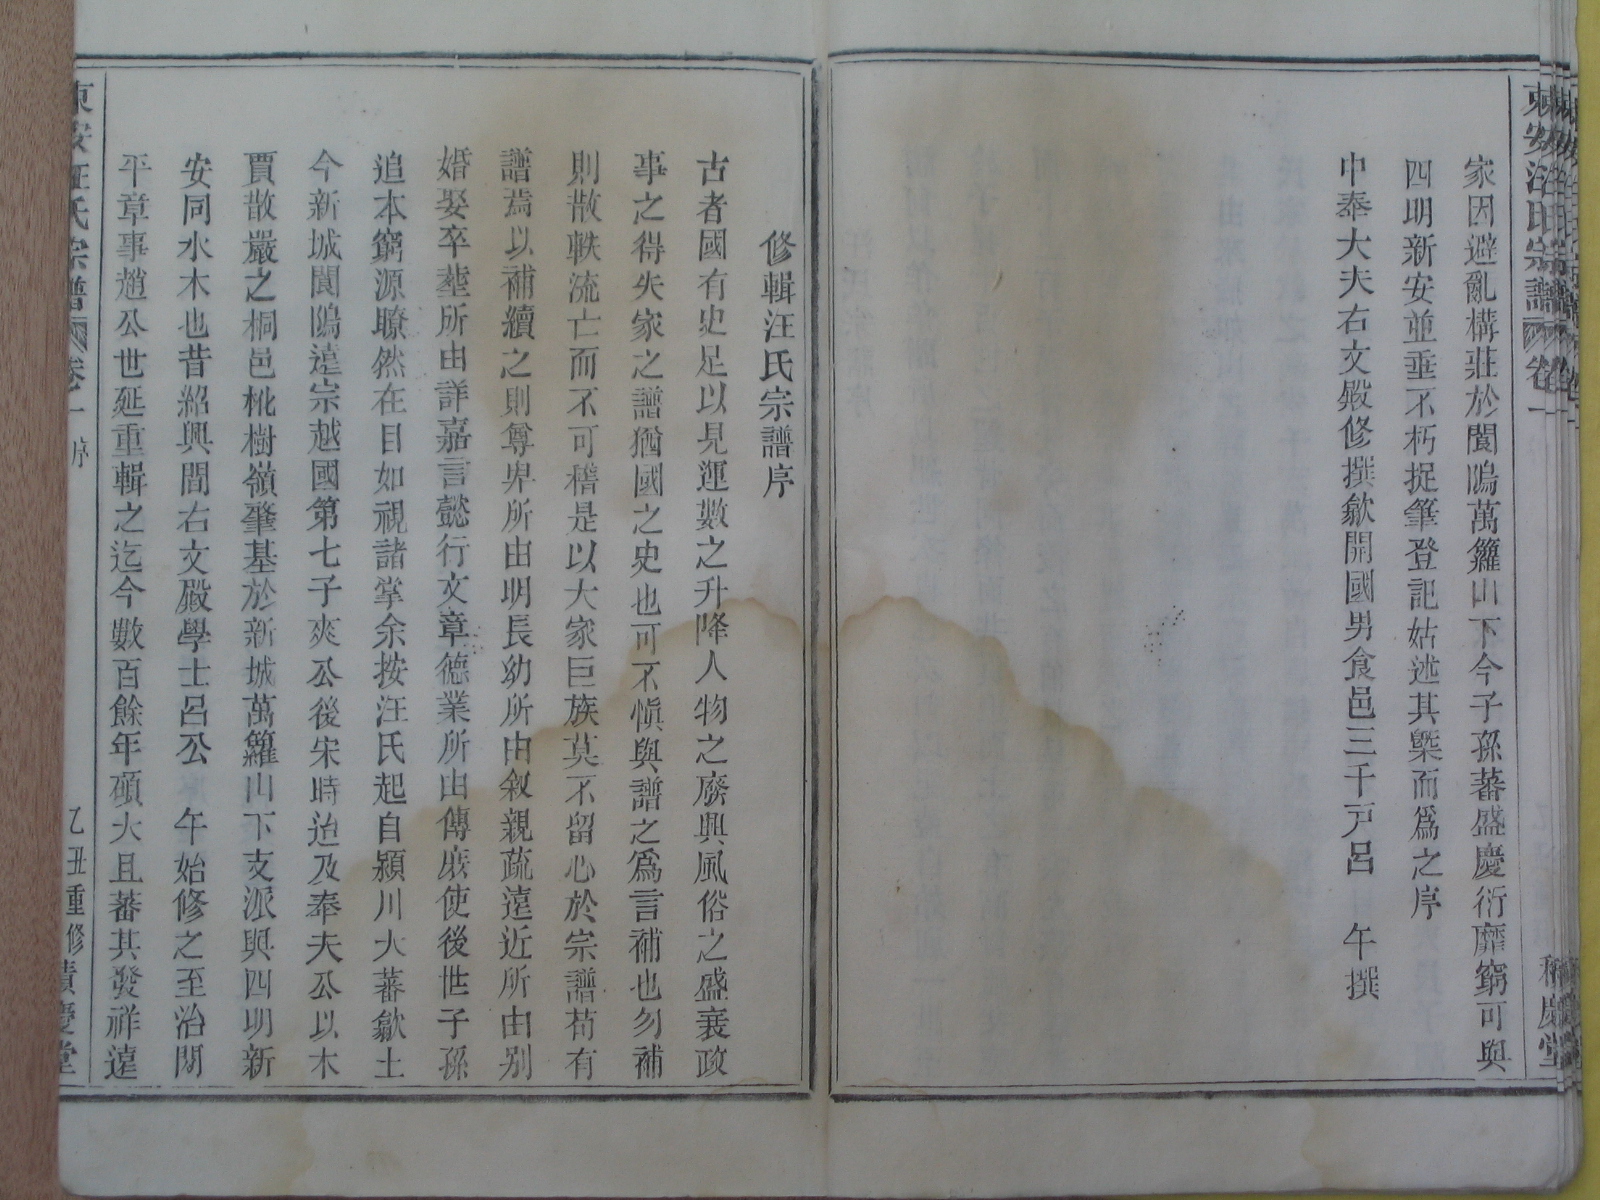 東安汪氏宗譜 卷一
積慶堂
家因避亂構莊於閬鴡萬籮山下今子孫蕃盛慶衍靡窮可與
四明新安並垂不朽捉筆登記姑述其槩而爲之序
中奉大夫右文殿修撰歙開國男食邑三千戸呂 午撰
修輯汪氏宗譜序
古者國有史足以見運數之升降人物之廢興風俗之盛衰政
事之得失家之譜猶國之史也可不慎與譜之爲言補也勿補
則散軼流亡而不可稽是以大家巨族莫不留心於宗譜苟有
譜焉以補續之則尊卑所由明長幼所由叙親疏遠近所由别
婚娶卒塟所由詳嘉言懿行文章德業所由傳庶使後世子孫
追本窮源瞭然在目如視諸掌余按汪氏起自潁川大蕃歙土
今新城閬鴡遠宗越國第七子爽公後宋時迨及奉夫公以木
賈散嚴之桐邑桃樹嶺肇基於新城萬籮山下支派與四明新
安同水木也昔紹興間右文殿學士呂公 午始修之至治間
平章事趙公世延重輯之迄今數百餘年碩大且蕃其發祥遠
東安汪氏宗譜 卷一 序
乙丑重修積慶堂